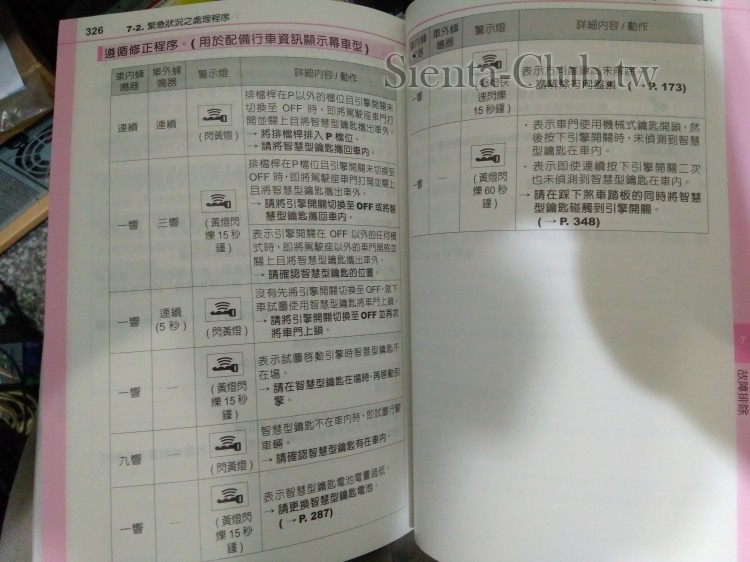 326
7-2. 緊急狀況之處理程序
遵循修正程序。(用於配備行車資訊顯示幕車型)
車內蜂鳴器
車外蜂鳴器
警示燈
詳細內容 / 動作
連續
連續
(閃黃燈)
排檔桿在P以外的檔位且引擎開關未
切換至 OFF 時,即將駕駛座車門打
開並關上且將智慧型鑰匙攜出車外。
→ 將排檔桿排入 P 檔位。
→ 請將智慧型鑰匙攜回車內。
一響
三響
(黃燈閃
爍 15 秒
鐘)
排檔桿在P檔位且引擎開關未切換至
OFF 時,即將駕駛座車門打開並關上
且將智慧型鑰匙攜出車外。
→ 請將引擎開關切換至 OFF 或將智
慧型鑰匙攜回車內。
表示引擎開關在 OFF 以外的任何模
式時,即將駕駛座以外的車門開啟並
關上且將智慧型鑰匙攜出車外。
→ 請確認智慧型鑰匙的位置。
一響
連續
(5 秒)
(閃黃燈)
沒有先將引擎開關切換至 OFF,就下
車試圖使用智慧型鑰匙將車門上鎖。
→ 請將引擎開關切換至 OFF 並再次
將車門上鎖。
一響
—
(黃燈閃
爍 15 秒
鐘)
表示試圖啟動引擎時智慧型鑰匙不
在場。
→ 請在智慧型鑰匙在場時,再啓動引
擎。
九響
—
(閃黃燈)
智慧型鑰匙不在車內時,即試圖行駛
車輛。
→ 請確認智慧型鑰匙有在車內。
一響
—
(黃燈閃
爍 15 秒
鐘)
表示智慧型鑰匙電池電量過低。
→ 請更換智慧型鑰匙電池。
(→ P. 287)
車外蜂
鳴器
警示燈
詳細內容 / 動作
一響
—
速閃爍
15 秒鐘)
(→ P. 173)
一響
—
(黃燈快
速閃爍
60 秒
鐘)
· 表示車門使用機械式鑰匙開鎖,然
後按下引擎開關時,未偵測到智慧
型鑰匙在車內。
· 表示即使連續按下引擎開關二次
也未偵測到智慧型鑰匙在車內。
→ 請在踩下煞車踏板的同時將智慧
型鑰匙碰觸到引擎開關。
(→ P. 348)
故障排除
Sienta-Club.tw